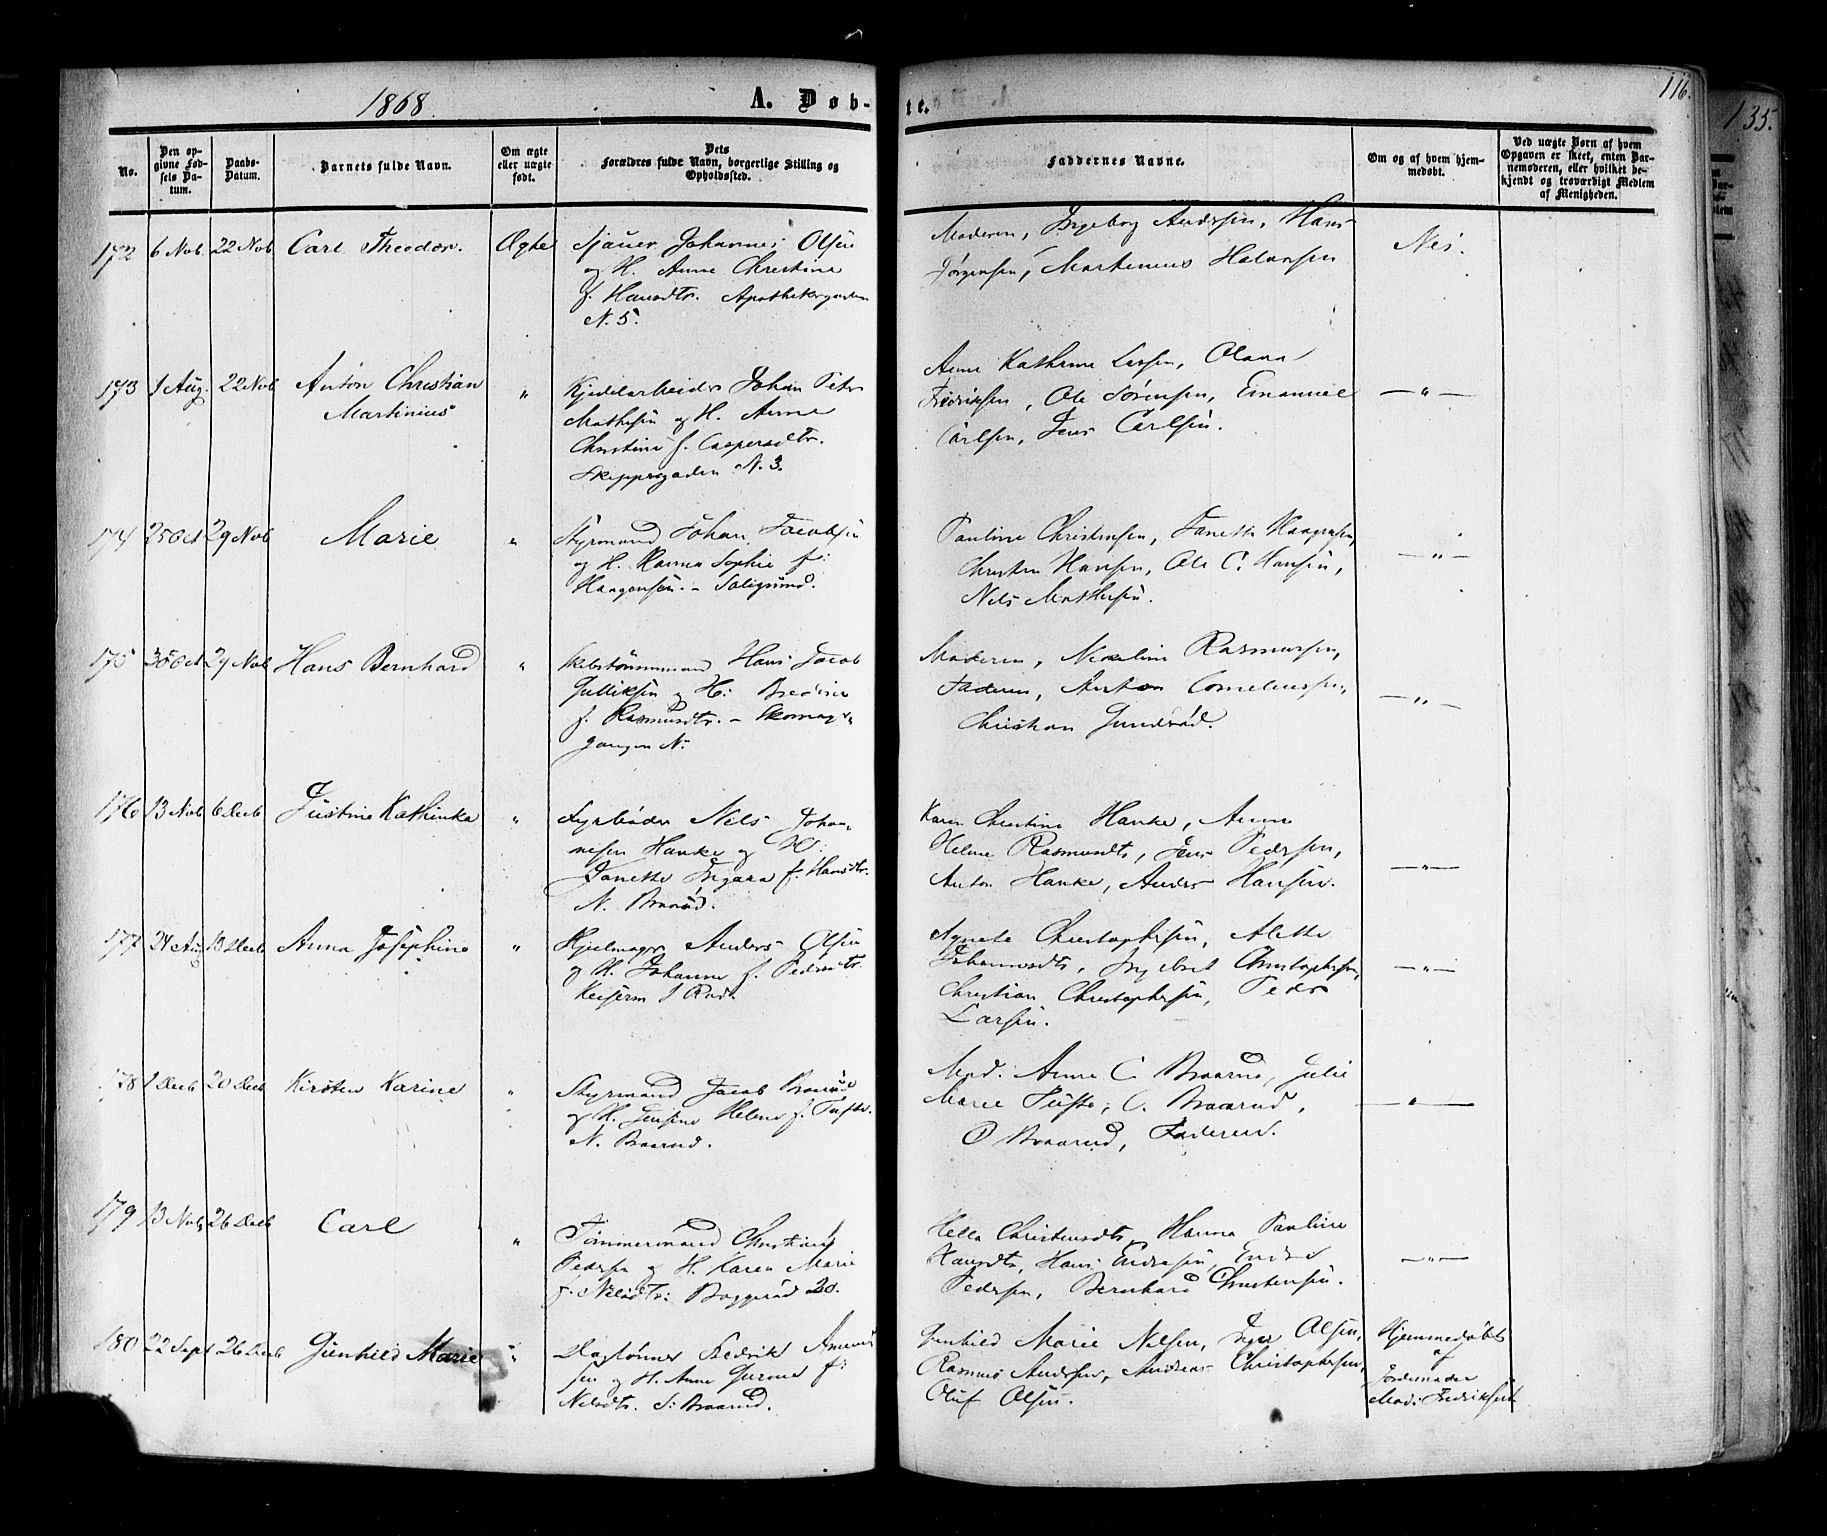 1868.
A. Døb-
te.
116.
135.
No.
Den op-
givne Fød-
sels Da-
tum.
Daabs-
Datum.
Barnets fulde Navn.
Om ægte
eller uægte
født.
Dets
Forældres fulde Navn, borgerlige Stilling og
Opholdssted.
Faddernes Navne.
Om og af hvem hjem-
medøbt.
Ved uægte Børn af hvem
Opgaven er skeet, enten Bar-
nemoderen, eller hvilket be-
kjendt og troværdigt Medlem
af Menigheden.
172 6 Nob. 22 Nob Carl Theodor. Ægte
Sjauer Johannes Olsen
og H. Anne Christine
f. Hansdtr. Apothekergaden
N. 5.
Moderen, Ingeborg Andersen, Hans
Jørgensen, Martinius Halvorsen
Nei.
173 1 Aug. 22 Nob Anton Christian
Martinius
"
Kjedelarbeider Johan Peter
Mathesen og H. Anne
Christine f. Caspersdtr.
Skippergaden N. 3.
Anne Kathrine Larsen, Olava
Fredriksen, Ole Sørensen, Emanuel
Carlsen, Jens Carlsen.
— " —
174 25 Oct 29 Nob Marie "
Styrmand Johan Jacobsen
og H. Hanna Sophie f:
Haagensen. – Saligsund.
Pauline Christensen, Janette Haagensen,
Christen Hansen, Ole C. Hansen,
Nels Mathesen.
— " —
175 30 Oct 29 Nob Hans Bernhard "
Skibstømmermand Hans Jacob
Gulliksen og H: Bredine
f. Rasmusdtr. – Skomager-
gangen N.
Moderen, Nicoline Rasmussen,
Faderen, Anton Corneliussen,
Christian Gundrød.
— " —
176 13 Nob 6 Decb Justine Kathinka "
Fyrbøder Nels Johan-
nesen Hanke og H:
Janette Ingara f. Hansdtr.
N. Braarud.
Karen Christine Hanke, Anne
Helene Rasmusdtr, Jens Pedersen,
Anton Hanke, Anders Hansen.
— " —
177 24 Aug 13 Decb Anna Josephine "
Hjulmager Anders Olsen
og H. Johanne f. Pedersdtr.
Agnete Christophersen, Alette
Johannesdtr, Ingebret Christophersen,
Christian Christophersen, Peder
Larsen.
— " —
178 1 Decb 20 Decb Kirsten Karine "
Styrmand Jacob Braarud
og H. Jensine Helene f. Tufte.
N. Braarud.
Mod. Anne C. Braarud, Julie
Marie Tufte, C. Braarud,
O Braarud, Faderen.
— " —
179 13 Nob 26 Decb Carl "
Tømmermand Christian
Pedersen og H. Karen Marie
f. Nilsdtr: Baggerud 20.
Helle Christensdtr, Hanna Pauline
Hansdtr, Hans Endresen, Endre
Pedersen, Bernhard Christensen.
— " —
180 22 Sept 26 Decb Gunhild Marie "
Daglønner Fredrik Amund-
sen og H. Anne Gurine f:
Nilsdtr. S: Braarud.
Gunhild Marie Nilsen, Inger Olsen,
Rasmus Andersen, Andreas Christophersen,
Oluf Olsen.
Hjemmedøbt
af
Jordemoder
Mad: Fredriksen